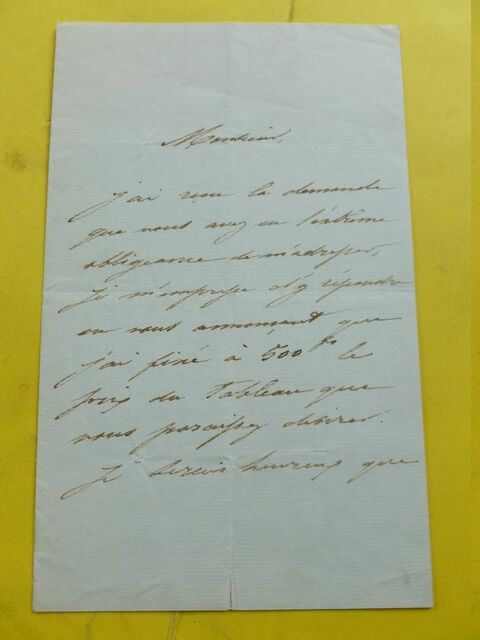 Monsieur,
j'ai reçu la demande
que vous avez eu l'extrême
obligeance de m'adresser,
je m'empresse d'y répondre
en vous annonçant que
j'ai fixé à 500 frs le
prix du Tableau que
vous paraissez désirer.
Je serais heureux que